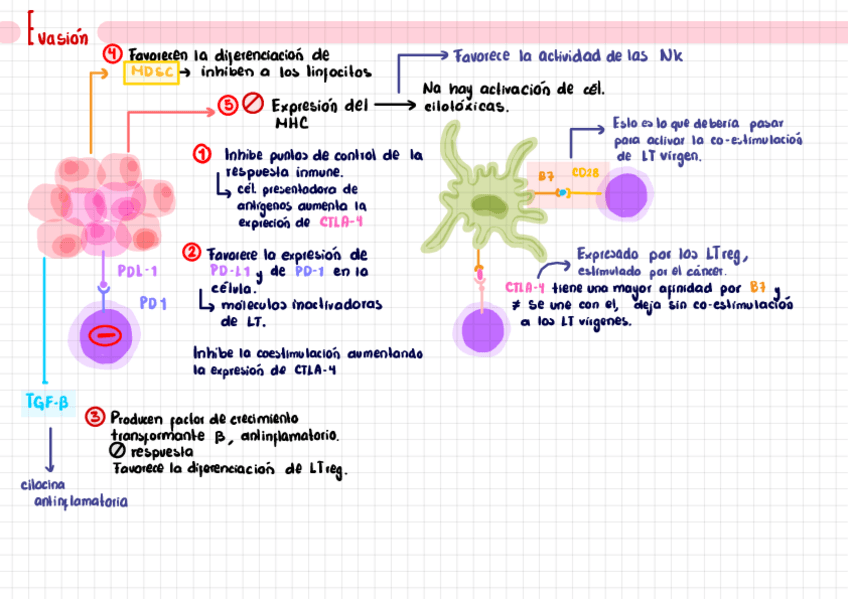 Evasión
④ Favorecen la diferenciación de
MDSC → inhiben a los linfocitos
Favorece la actividad de las NK
⑤ Expresión del
MHC
No hay activación de cél.
citotóxicas.
Esto es lo que debería pasar
para activar la co-estimulación
de LT virgen.
① Inhibe puntos de control de la
respuesta inmune.
cél. presentadora de
antígenos aumenta la
expreción de CTLA-4
B7
CD28
② Favorece la expresión de
PD-L1 y de PD-1 en la
célula.
moleculas inactivadoras
de LT.
PDL-1
PD1
Expresado por los LTreg,
estimulado por el cáncer.
CTLA-4 tiene una mayor afinidad por B7 y
≠ se une con el, deja sin co-estimulación
a los LT vírgenes.
Inhibe la coestimulación aumentando
la expresión de CTLA-4
TGF-β
③ Producen factor de crecimiento
transformante β, antinflamatorio.
respuesta
Favorece la diferenciación de LTreg.
citocina
antinflamatoria